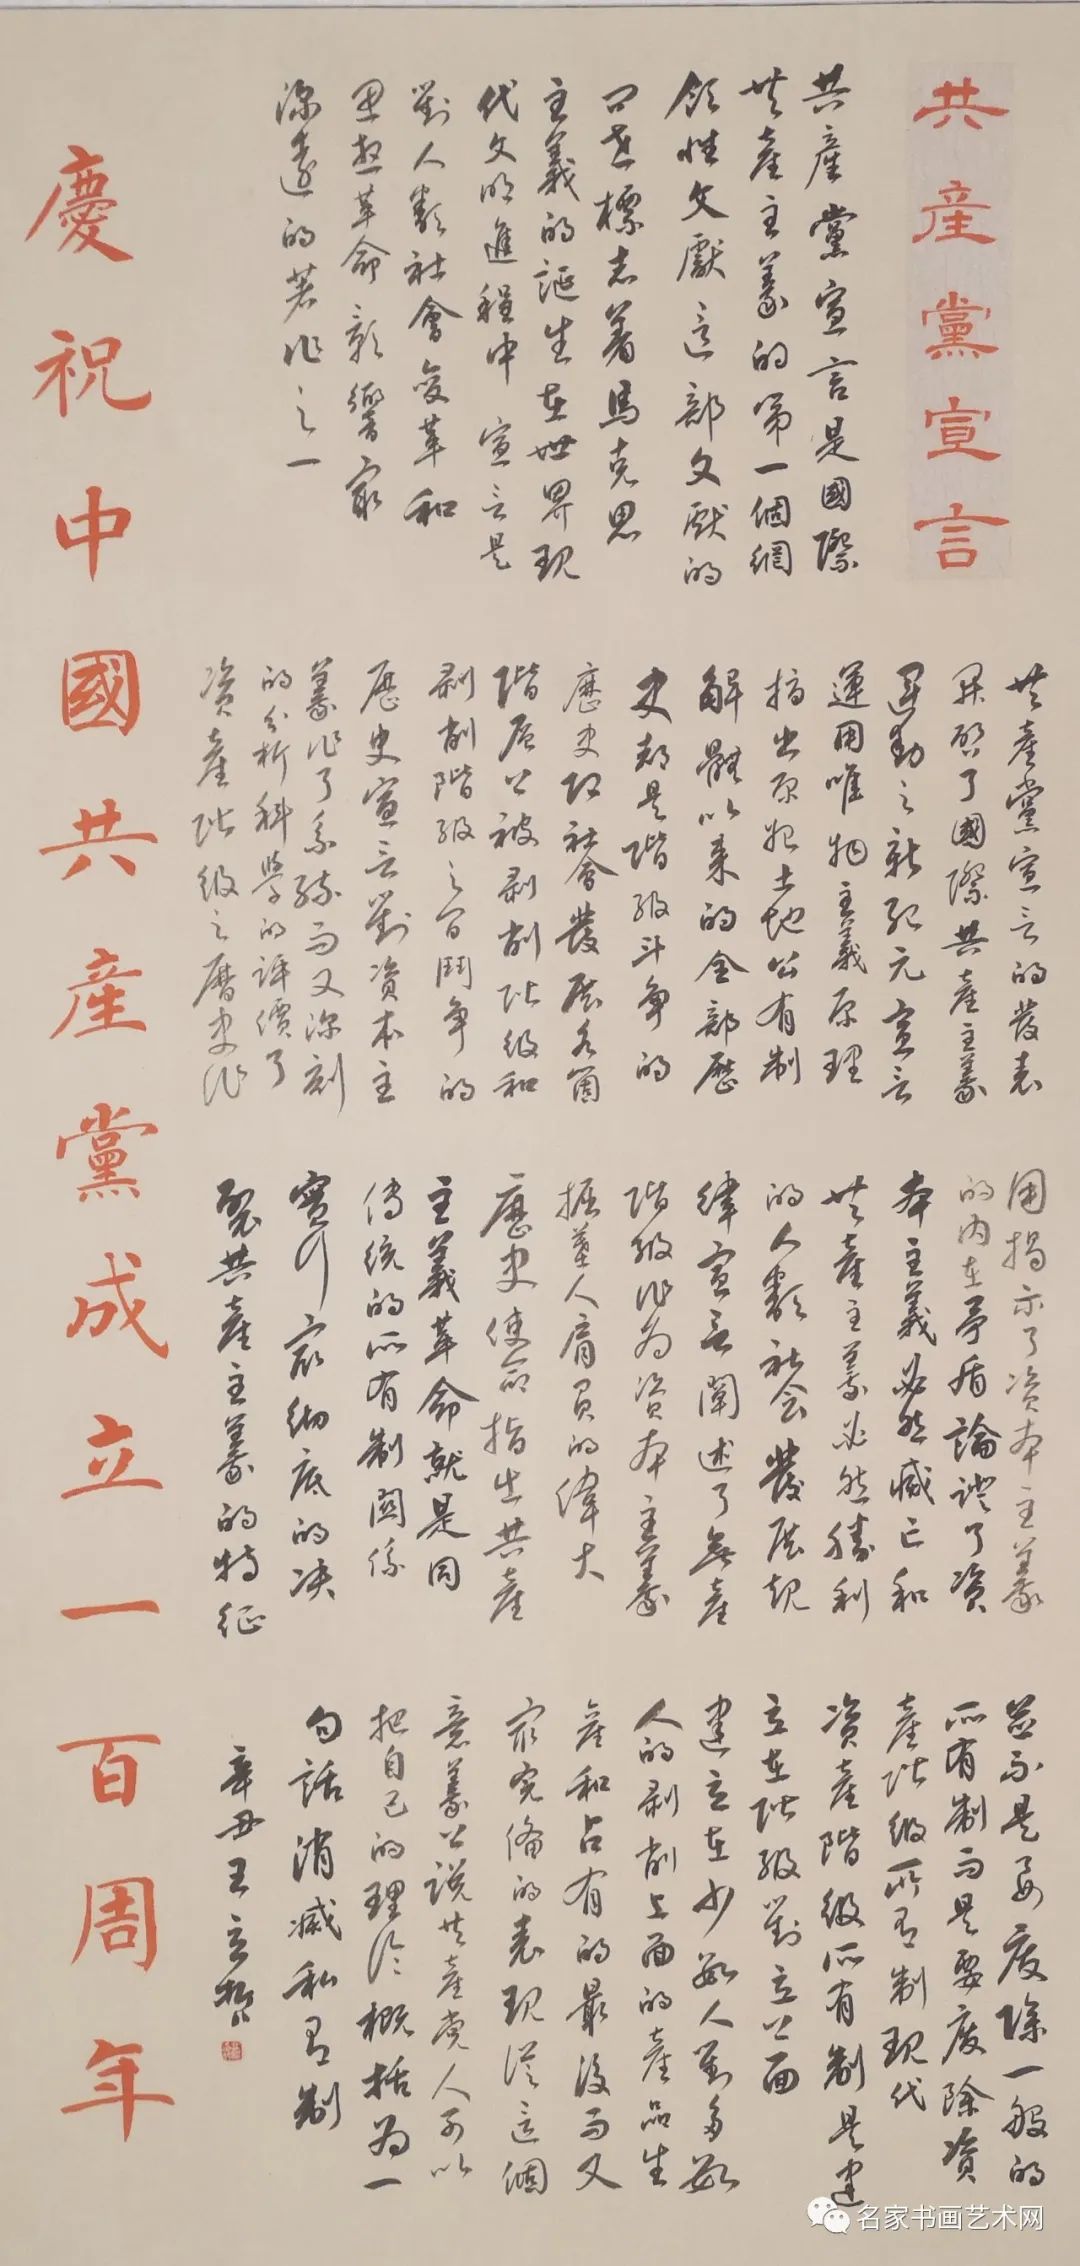 共產黨宣言
共產黨宣言是國際
共產主義的第一個綱
領性文獻這部文獻的
問世標志著馬克思
主義的誕生在世界現
代文明進程中宣言是
對人類社會變革和
思想革命影響最
深遠的著作之一
共產黨宣言的發表
開啓了國際共產主義
運動之新紀元宣言
運用唯物主義原理
指出原始土地公有制
解體以來的全部歷
史都是階級斗爭的
歷史即社會發展各個
階層上被剥削階級和
剥削階級之間鬥爭的
歷史宣言對資本主
義作了系統而又深刻
的分析科學的評價了
資產階級之曆史作
用揭示了資本主義
的内在矛盾論證了資
本主義必然滅亡和
共產主義必然勝利
的人類社会發展規
律宣言闡述了無產
階級作为資本主義
掘墓人肩負的偉大
歷史使命指出共產
主義革命就是同
传统的所有制関係
實行最彻底的决
裂共產主義的特征
並不是要废除一般的
所有制而是要废除資
產階級所有制現代
資產階級所有制是建
立在階級對立上面
建立在少數人對多數
人的剥削上面的產品生
產和占有的最後而又
最完備的表現從這個
意義上説共產党人可以
把自己的理论概括为一
句話消滅私有制
辛丑王立
慶祝中國共產黨成立一百周年
名家书画艺术网